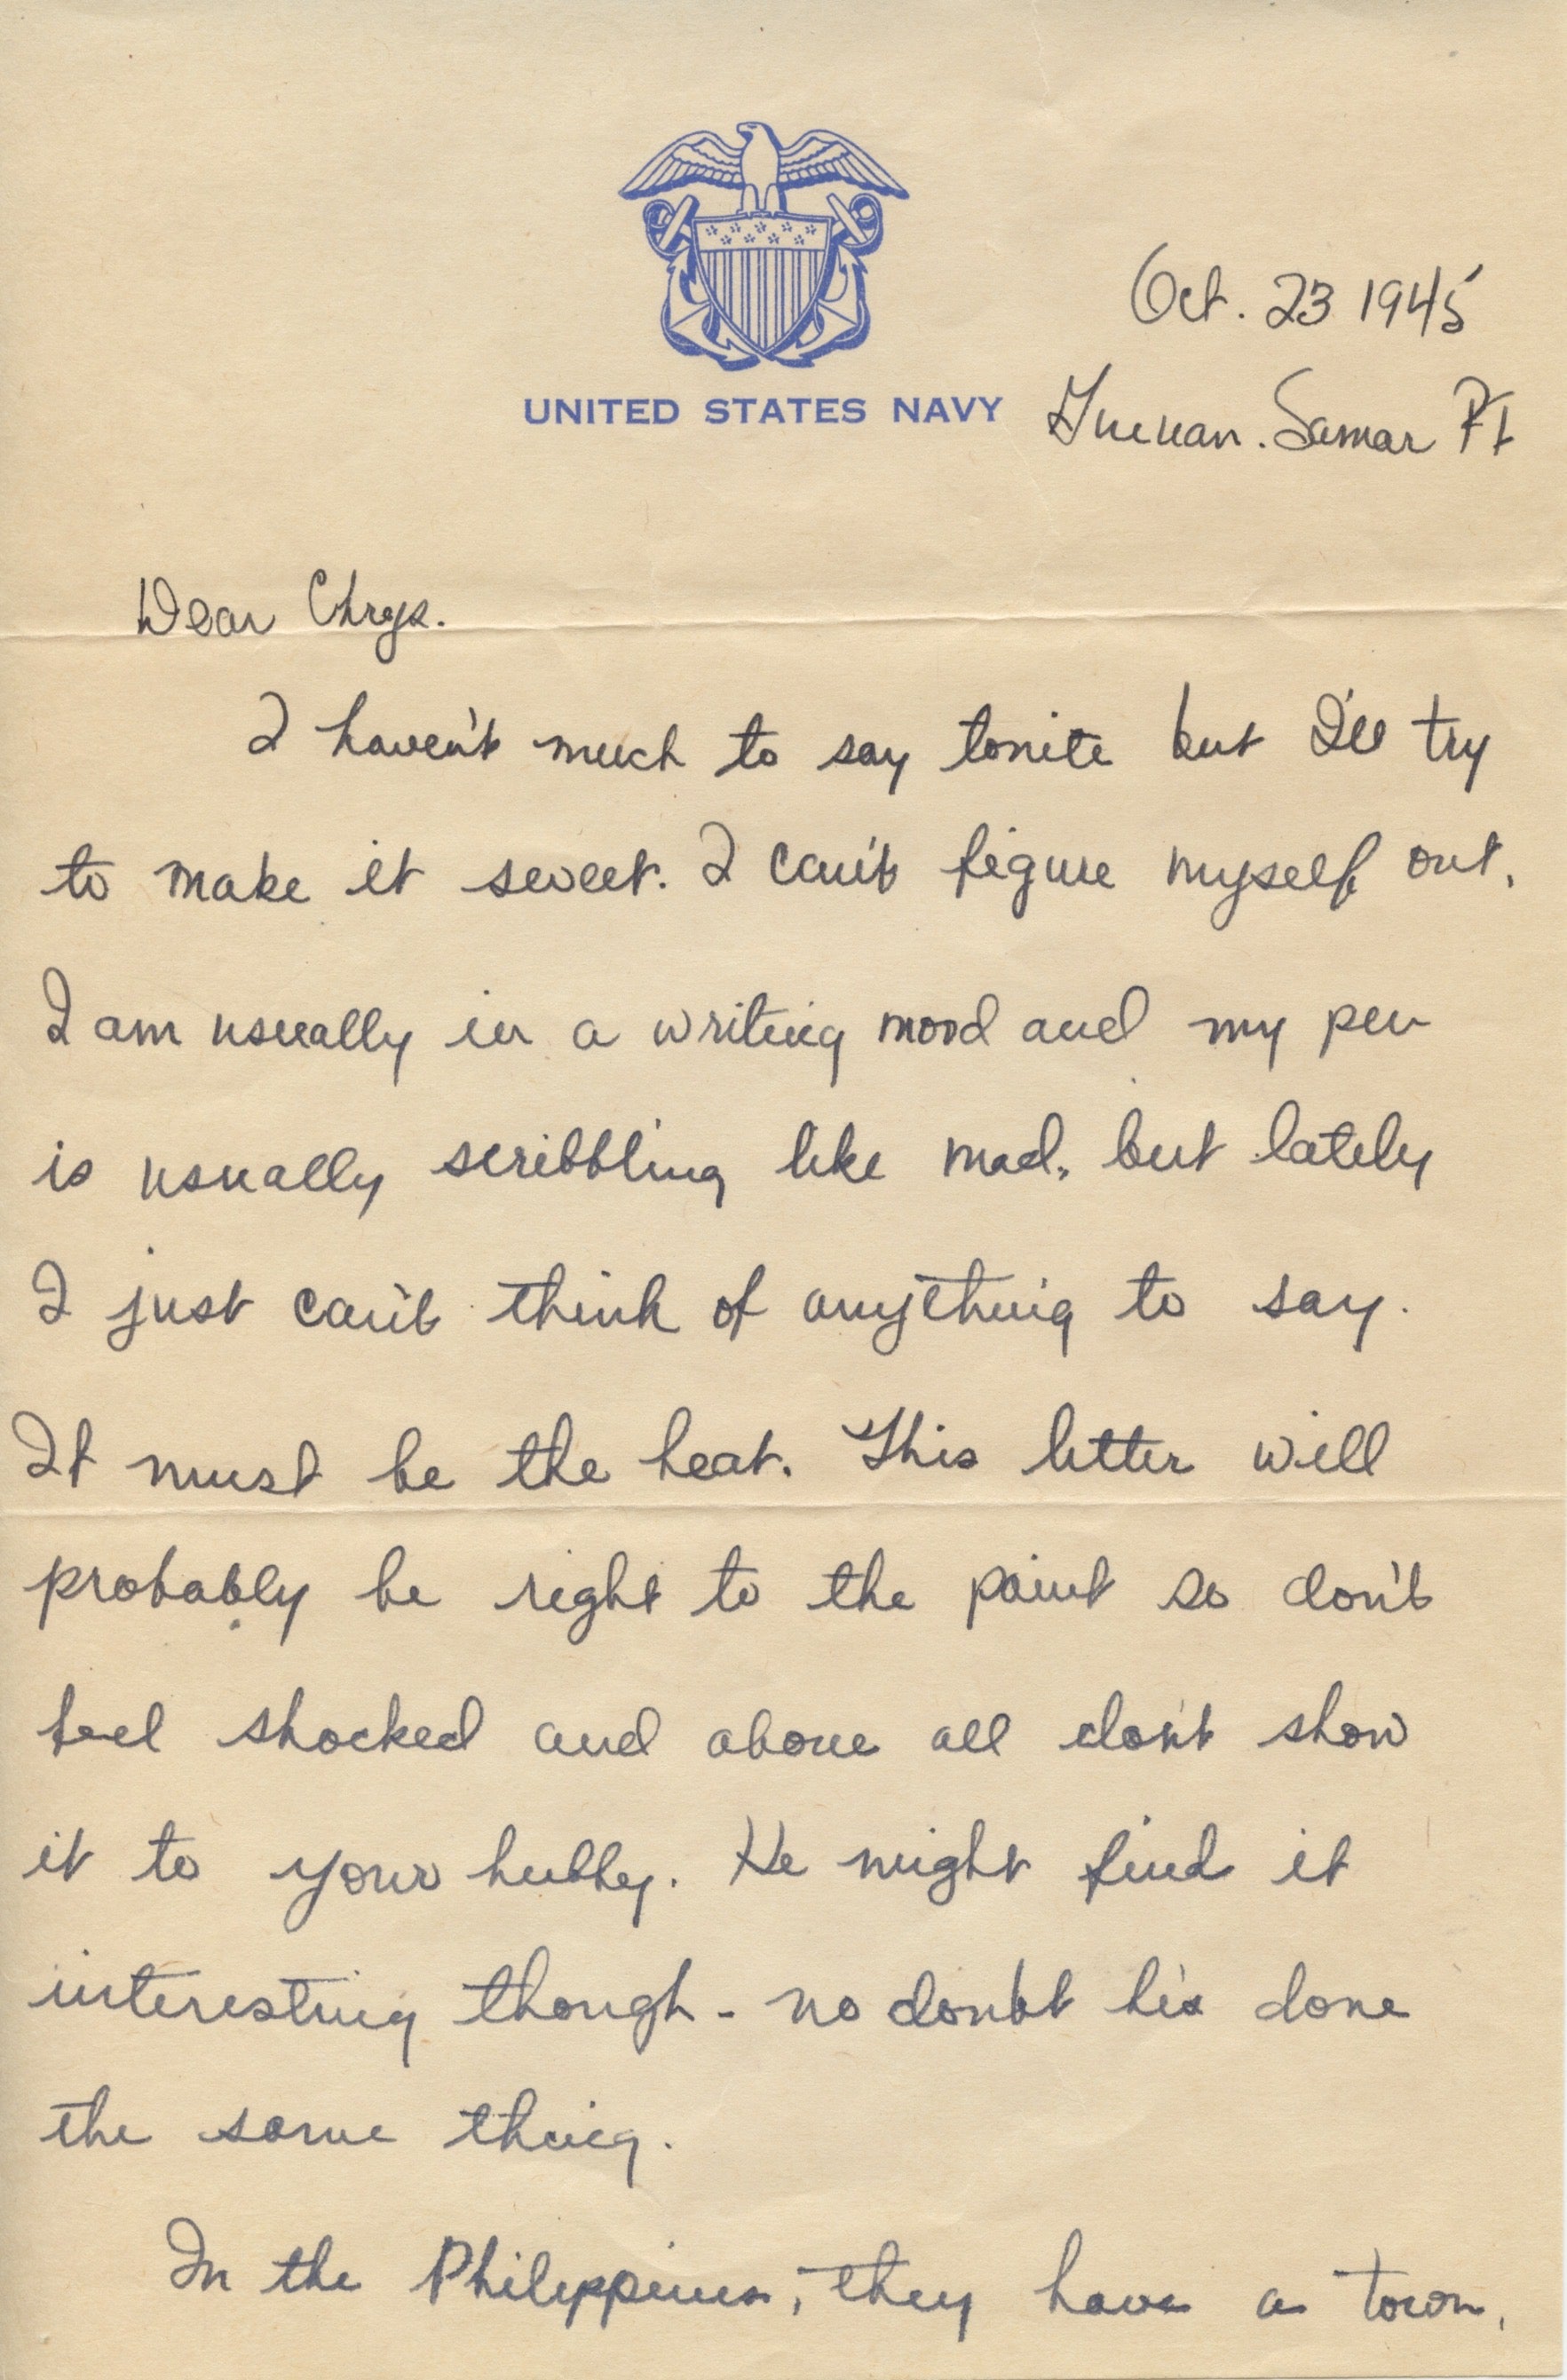 Oct. 23 1945
UNITED STATES NAVY
Guiuan. Samar PI
Dear Chrys.
I haven't much to say tonite but I'll try
to make it sweet. I can't figure myself out.
I am usually in a writing mood and my pen
is usually scribbling like mad, but lately
I just can't think of anything to say.
It must be the heat. This letter will
probably be right to the point so don't
feel shocked and above all don't show
it to your hubby. He might find it
interesting though - no doubt he's done
the same thing.
In the Philippines, they have a town,